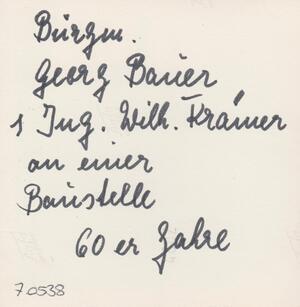 Bürgm.
Georg Bauer
1 Ing. Wilh. Krämer
an einer
Baustelle
60er Jahre
70538